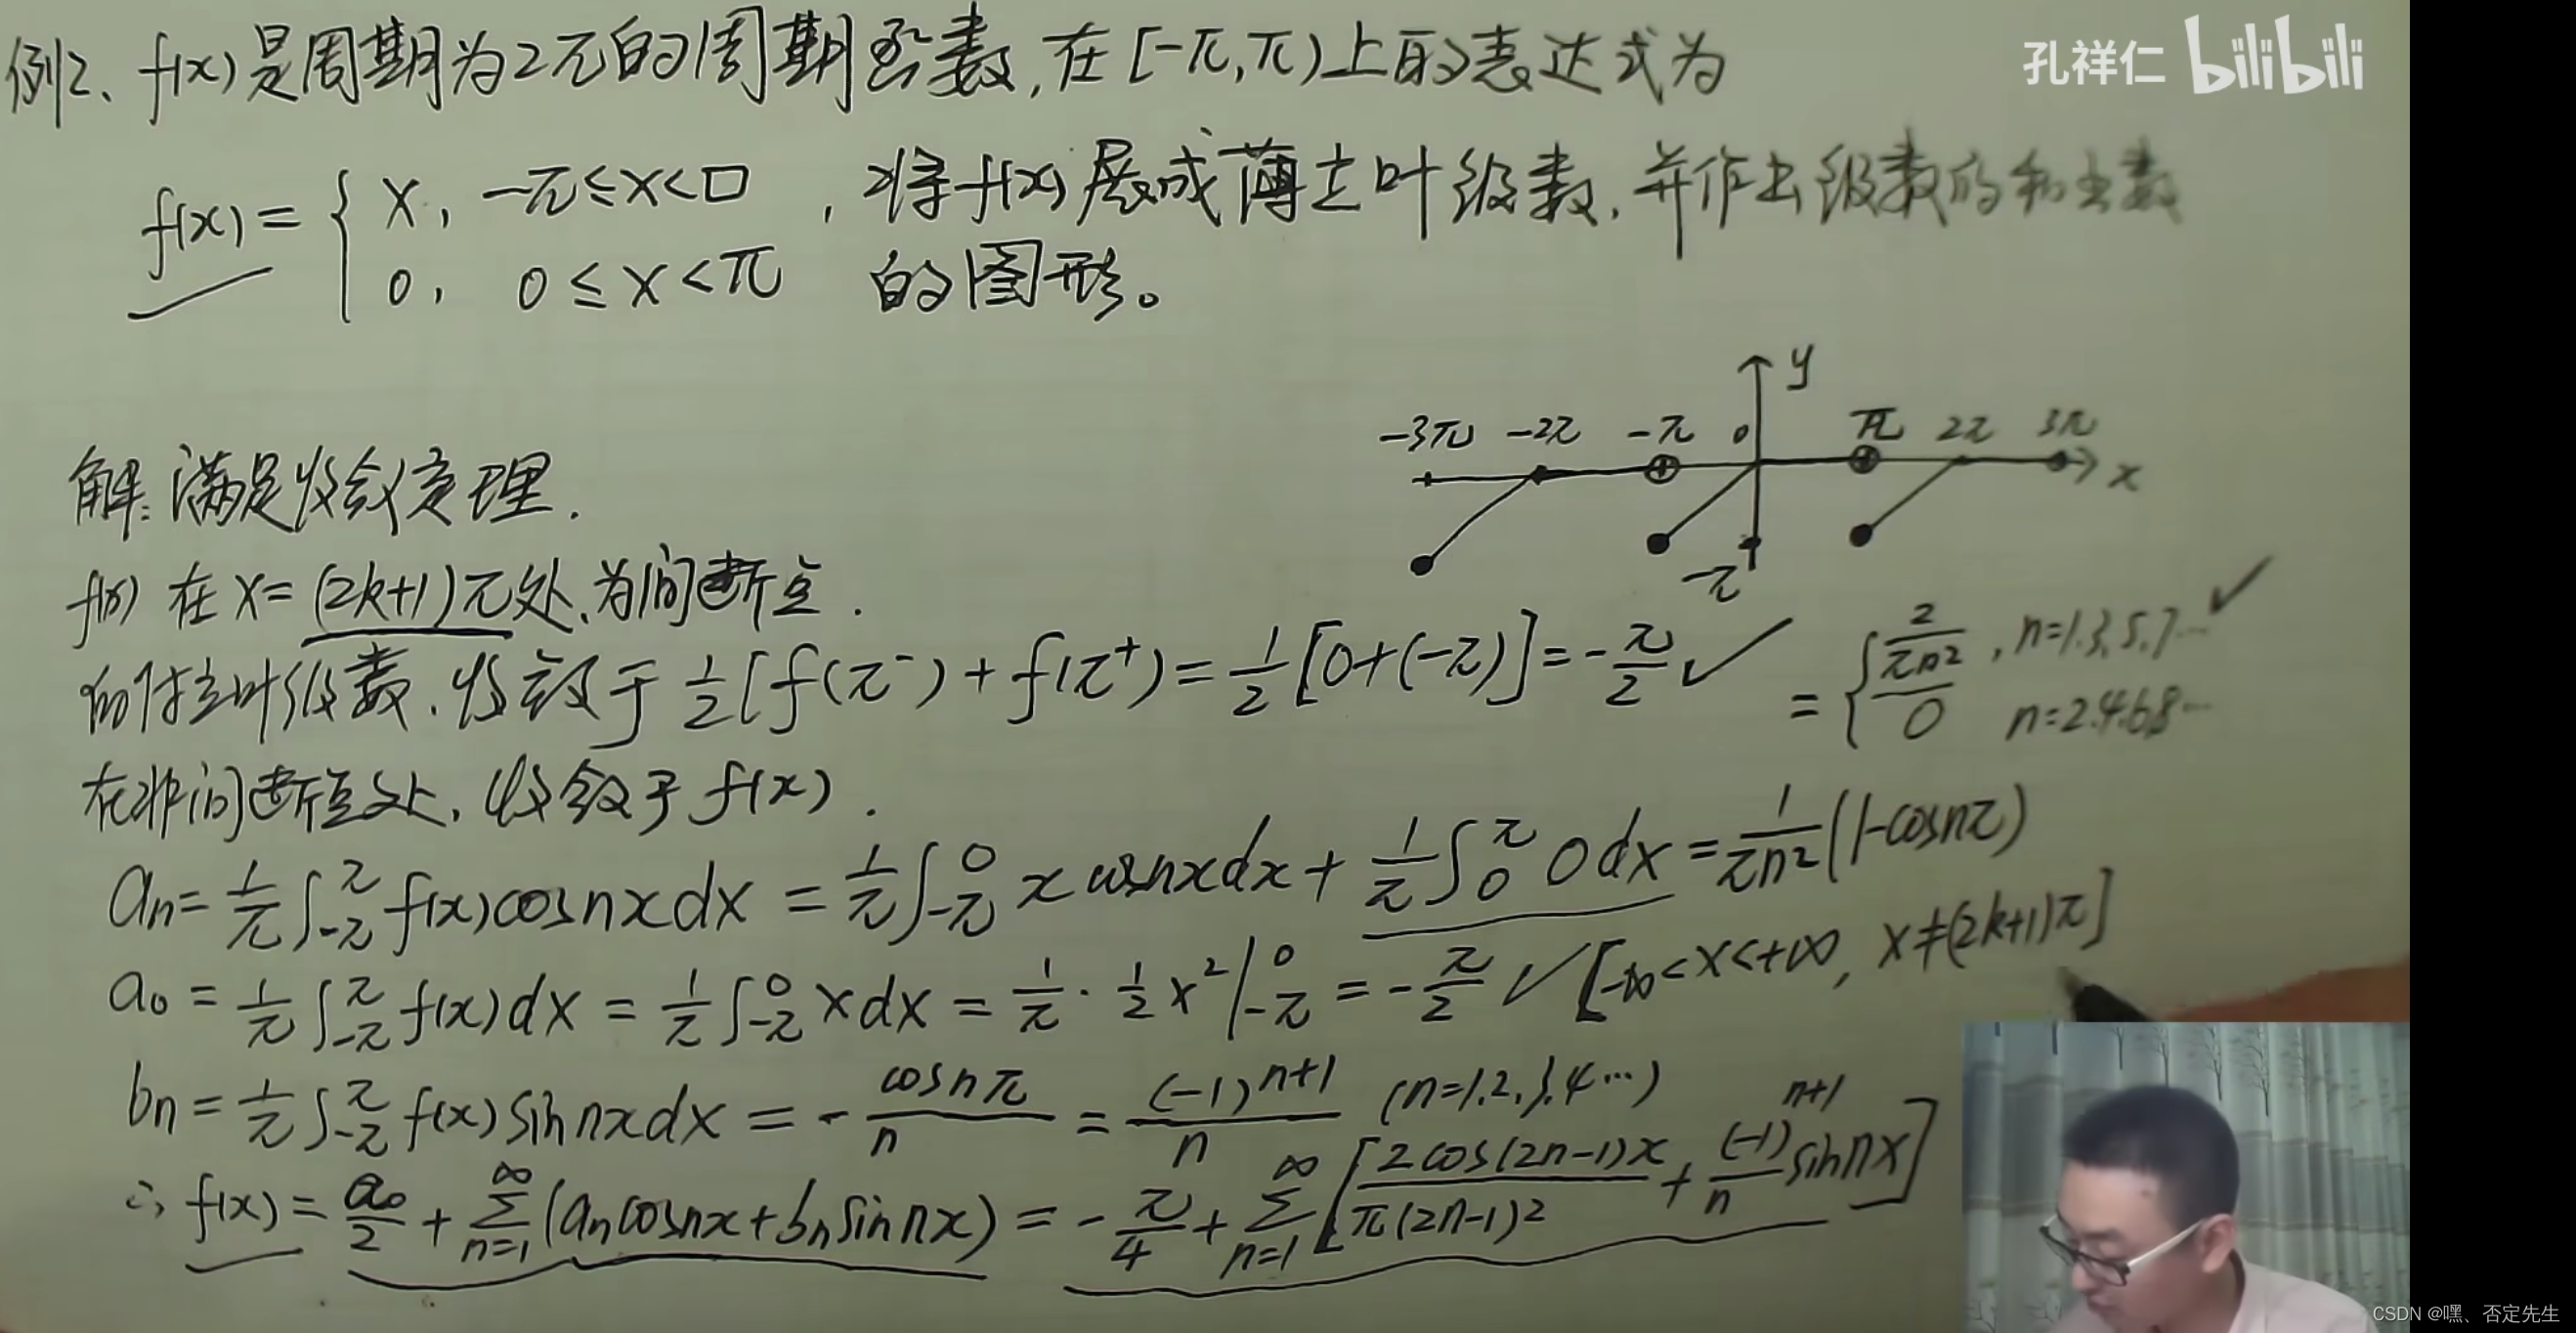 例2、f(x)是周期为2π的周期函数,在[-π,π)上的表达式为
孔祥仁 bilibili
f(x)= { x, -π≤x<0 , 将f(x)展成薄立叶级数,并作出级数的和函数
0, 0≤x<π 的图形。
y
-3π -2π -π 0 π 2π 3π
x
-π
解:满足收敛定理.
f(x)在x=(2k+1)π处,为间断点.
的付立叶级数,收敛于 1/2[f(π⁻)+f(π⁺)=1/2[0+(-π)]=-π/2 ✓
= { 2/(πn²), n=1.3,5,7… ✓
0 n=2.4.6.8…
在非间断点处,收敛于f(x).
an=1/π∫_{-π}^{π}f(x)cosnxdx=1/π∫_{-π}^{0}xcosnxdx+1/π∫_{0}^{π}0dx=1/(πn²)(1-cosnπ)
a₀=1/π∫_{-π}^{π}f(x)dx=1/π∫_{-π}^{0}xdx=1/π·1/2x²|_{-π}^{0}=-π/2 ✓ [-∞<x<+∞, x≠(2k+1)π]
bn=1/π∫_{-π}^{π}f(x)sinnxdx=-cosnπ/n=(-1)^{n+1}/n (n=1.2,3.4…)
∴f(x)=a₀/2+∑_{n=1}^{∞}(an cosnx+bn sinnx)=-π/4+∑_{n=1}^{∞}[2cos(2n-1)x/(π(2n-1)²)+(-1)^{n+1}/n sinnx]
CSDN @嘿、否定先生